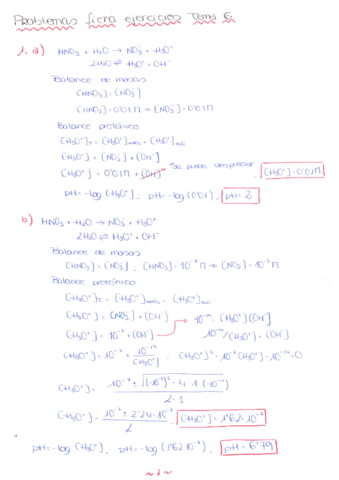 Problemas ficha ejercicios Tema 6
1. a) HNO₃ + H₂O → NO₃⁻ + H₃O⁺
2H₂O ⇌ H₃O⁺ + OH⁻
Balance de masas
[HNO₃] = [NO₃⁻]
[HNO₃] = 0'01M → [NO₃⁻] = 0'01M
Balance protónico
[H₃O⁺]T = [H₃O⁺]HNO₃ + [H₃O⁺]H₂O
[H₃O⁺] = [NO₃⁻] + [OH⁻]
[H₃O⁺] = 0'01M + [OH⁻] Se puede despreciar [H₃O⁺] = 0'01M
pH = -log [H₃O⁺] ; pH = -log (0'01) ; pH = 2
b) HNO₃ + H₂O → NO₃⁻ + H₃O⁺
2H₂O ⇌ H₃O⁺ + OH⁻
Balance de masas
[HNO₃] = [NO₃⁻] ; [HNO₃] = 10⁻⁷M → [NO₃⁻] = 10⁻⁷M
Balance protónico
[H₃O⁺]T = [H₃O⁺]HNO₃ + [H₃O⁺]H₂O
[H₃O⁺] = [NO₃⁻] + [OH⁻] 10⁻¹⁴ = [H₃O⁺][OH⁻]
[H₃O⁺] = 10⁻⁷ + [OH⁻] 10⁻¹⁴/[H₃O⁺] = [OH⁻]
[H₃O⁺] = 10⁻⁷ + 10⁻¹⁴/[H₃O⁺] ; [H₃O⁺]² - 10⁻⁷[H₃O⁺] - 10⁻¹⁴ = 0
[H₃O⁺] = 10⁻⁷ ± √((-10⁻⁷)² - 4·1·(-10⁻¹⁴)) / 2·1
[H₃O⁺] = 10⁻⁷ ± 2'24·10⁻⁷ / 2 ; [H₃O⁺] = 1'62·10⁻⁷
pH = -log [H₃O⁺] ; pH = -log (1'62·10⁻⁷) ; pH = 6'79
~ 1 ~